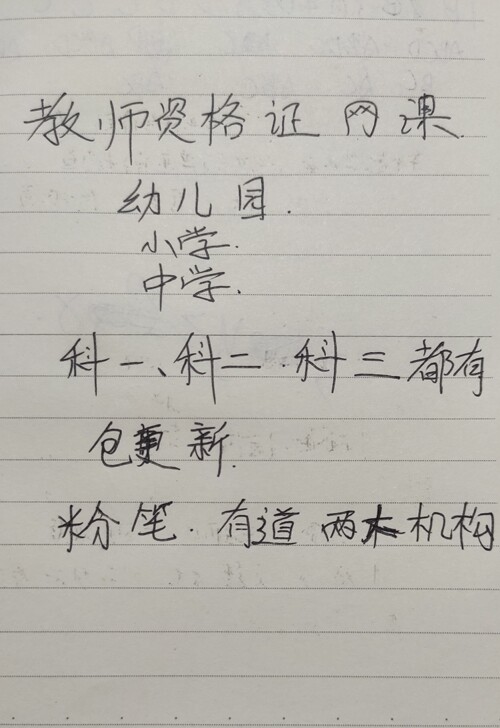 教师资格证网课.
幼儿园.
小学.
中学.
科一、科二.科三都有
包更新.
粉笔.有道两大机构